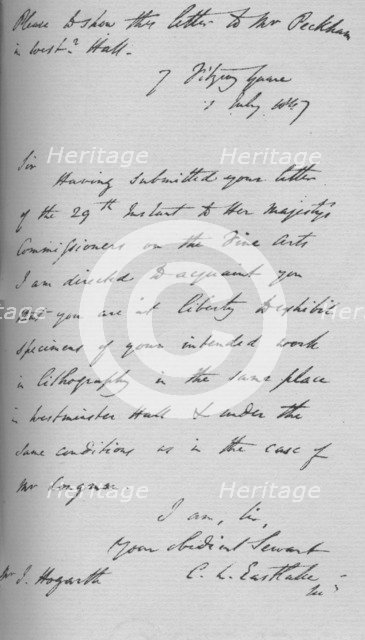 Please to show this letter to Mr Peckham
in West.r Hall.
7 Fitzroy Square
1 July 1847
Sir
Having submitted your letter
of the 29th Instant to Her Majesty's
Commissioners on the Fine Arts
I am directed to acquaint you
that you are at liberty to exhibit
specimens of your intended work
in lithography in the same place
in Westminster Hall & under the
same conditions as in the case of
Mr Longman.
I am, Sir,
Your obedient Servant
C. L. Eastlake
Mr J. Hogarth
Heritage
Heritage
Heritage
Heritage
Heritage
Heritage
Heritage
Heritage
C